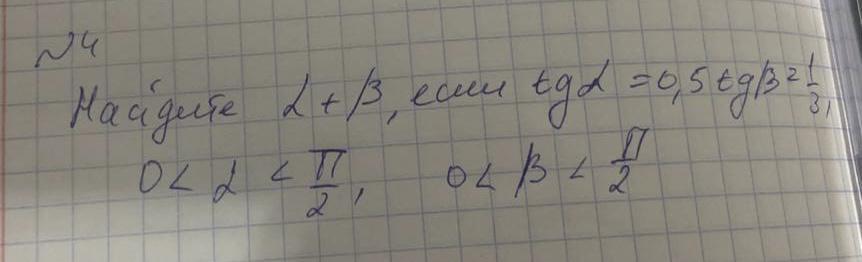 №4
Найдите α + β, если tgα = 0,5 tgβ = 1/3,
0 < α < π/2, 0 < β < π/2